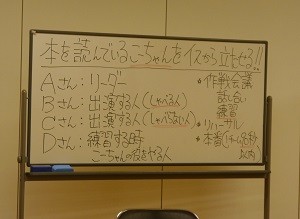 本を読んでいるこーちゃんをイスから立たせる!!
Aさん:リーダー
Bさん:出演する人(しゃべる人)
Cさん:出演する人(しゃべらない人)
Dさん:練習する時
こーちゃんの役をやる人
・作戦会議
話し合い
練習
・リハーサル
・本番
以内)